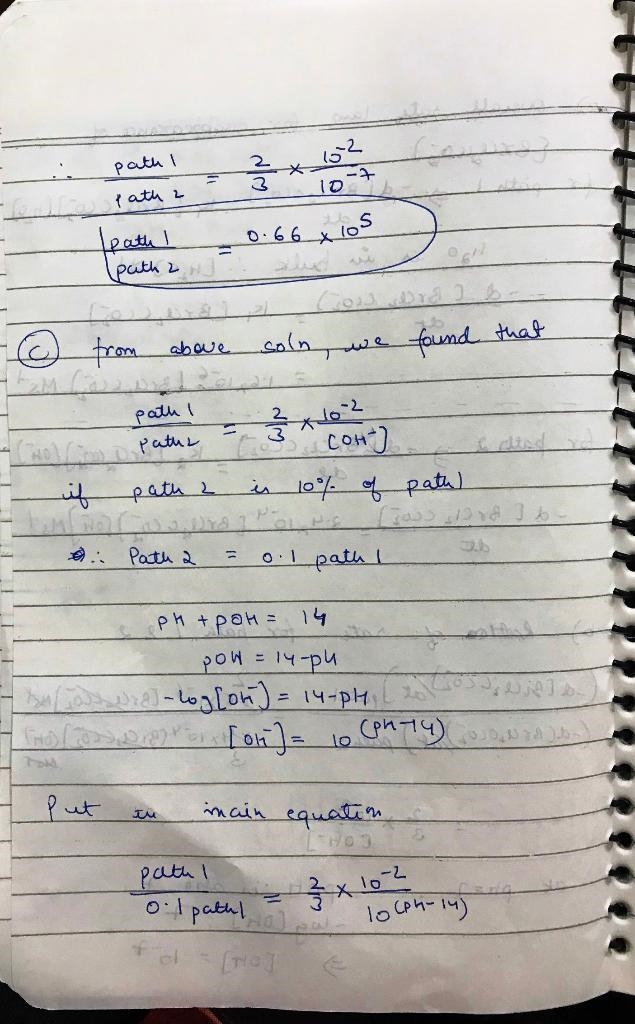 ∴ path 1 / path 2 = 2/3 × 10^-2 / 10^-7
path 1 / path 2 = 0.66 × 10^5
(C) from above soln, we found that
path 1 / path 2 = 2/3 × 10^-2 / [OH^-]
if path 2 is 10% of path 1
∴ Path 2 = 0.1 path 1
pH + pOH = 14
pOH = 14-pH
-log[OH^-] = 14-pH
[OH^-] = 10^(pH-14)
Put in main equation
path 1 / 0.1 path 1 = 2/3 × 10^-2 / 10^(pH-14)